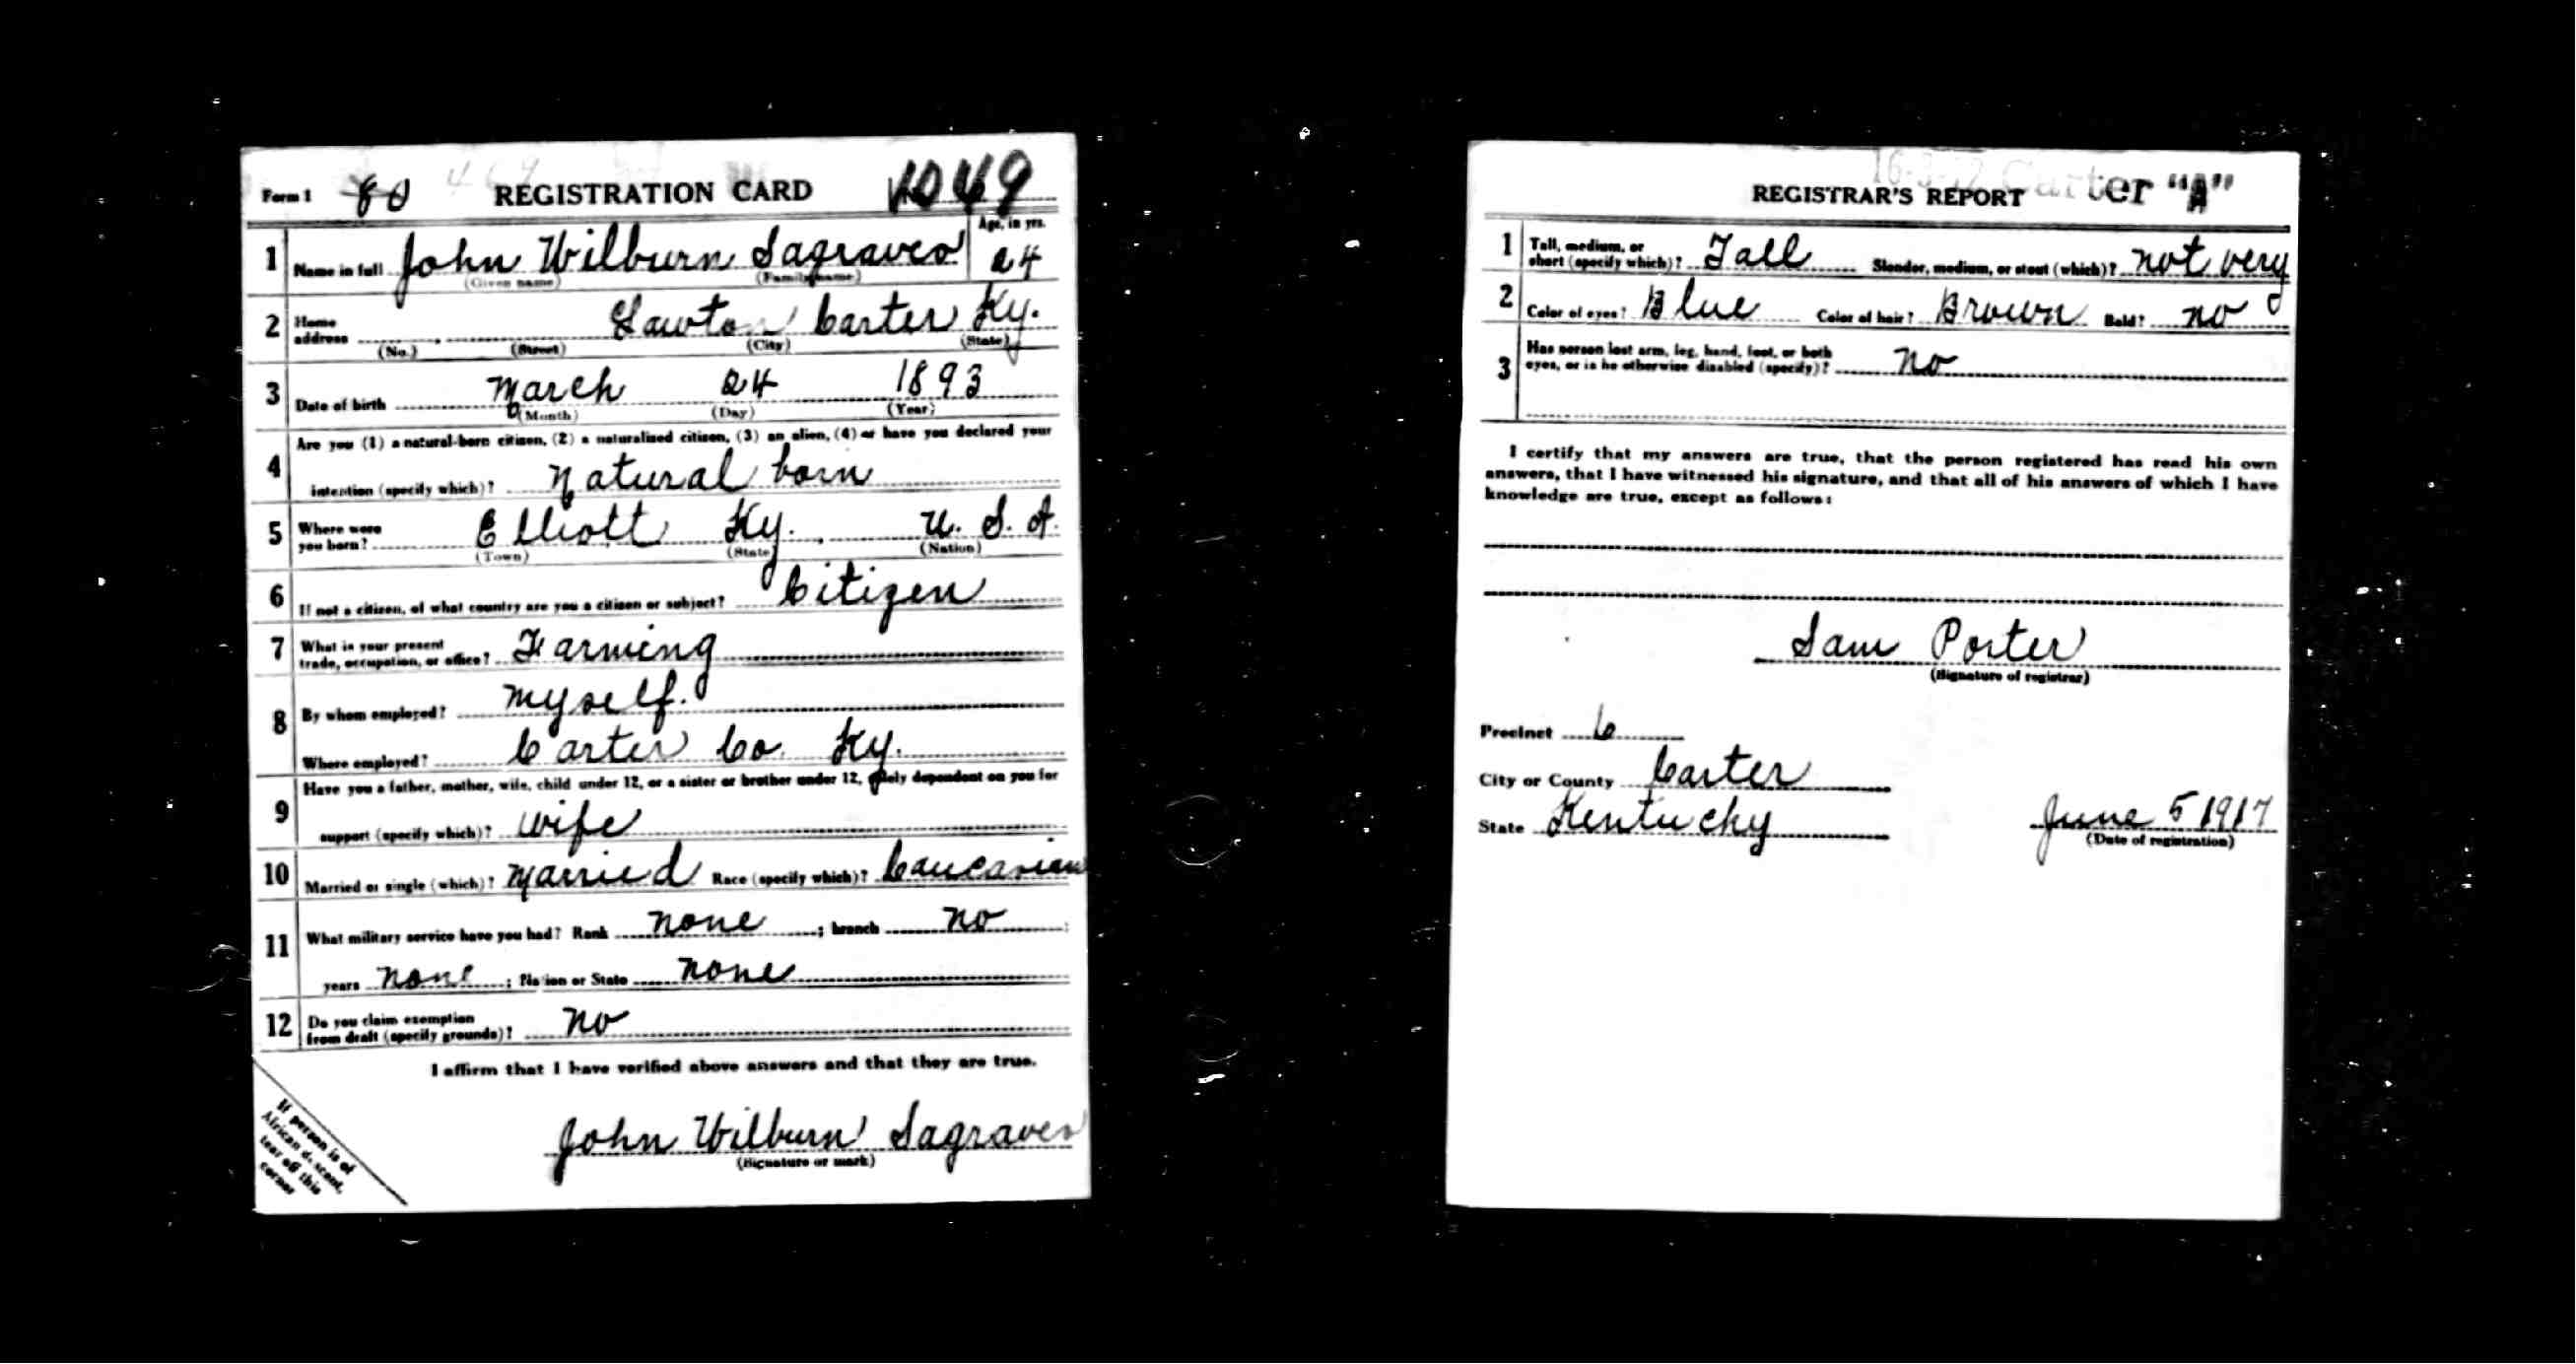 Form 1 80 REGISTRATION CARD 1049
Age, in yrs.
1 Name in full John Wilburn Sagraves 24
(Given name) (Family name)
2 Home address Lawton Carter Ky.
(No.) (Street) (City) (State)
3 Date of birth March 24 1893
(Month) (Day) (Year)
4 Are you (1) a natural-born citizen, (2) a naturalized citizen, (3) an alien, (4) or have you declared your
intention (specify which)? Natural born
5 Where were you born? Elliott Ky. U. S. A.
(Town) (State) (Nation)
6 If not a citizen, of what country are you a citizen or subject? Citizen
7 What is your present trade, occupation, or office? Farming
8 By whom employed? Myself.
Where employed? Carter Co. Ky.
9 Have you a father, mother, wife, child under 12, or a sister or brother under 12, solely dependent on you for
support (specify which)? Wife
10 Married or single (which)? Married Race (specify which)? Caucasian
11 What military service have you had? Rank none ; branch no ;
years none ; Nation or State none
12 Do you claim exemption from draft (specify grounds)? no
I affirm that I have verified above answers and that they are true.
John Wilburn Sagraves
(Signature or mark)
If person is of
African descent,
tear off this
corner
REGISTRAR'S REPORT Carter "A"
1 Tall, medium, or short (specify which)? Tall Slender, medium, or stout (which)? not very
2 Color of eyes? Blue Color of hair? Brown Bald? no
3 Has person lost arm, leg, hand, foot, or both
eyes, or is he otherwise disabled (specify)? no
I certify that my answers are true, that the person registered has read his own
answers, that I have witnessed his signature, and that all of his answers of which I have
knowledge are true, except as follows:
Sam Porter
(Signature of registrar)
Precinct 6
City or County Carter
State Kentucky June 5 1917
(Date of registration)